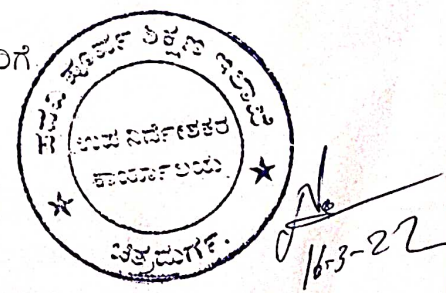 ರಿಗೆ
ಪದವಿ ಪೂರ್ವ ಶಿಕ್ಷಣ ಇಲಾಖೆ
ಉಪ ನಿರ್ದೇಶಕರ
ಕಾರ್ಯಾಲಯ
ಚಿತ್ರದುರ್ಗ.
16-3-22